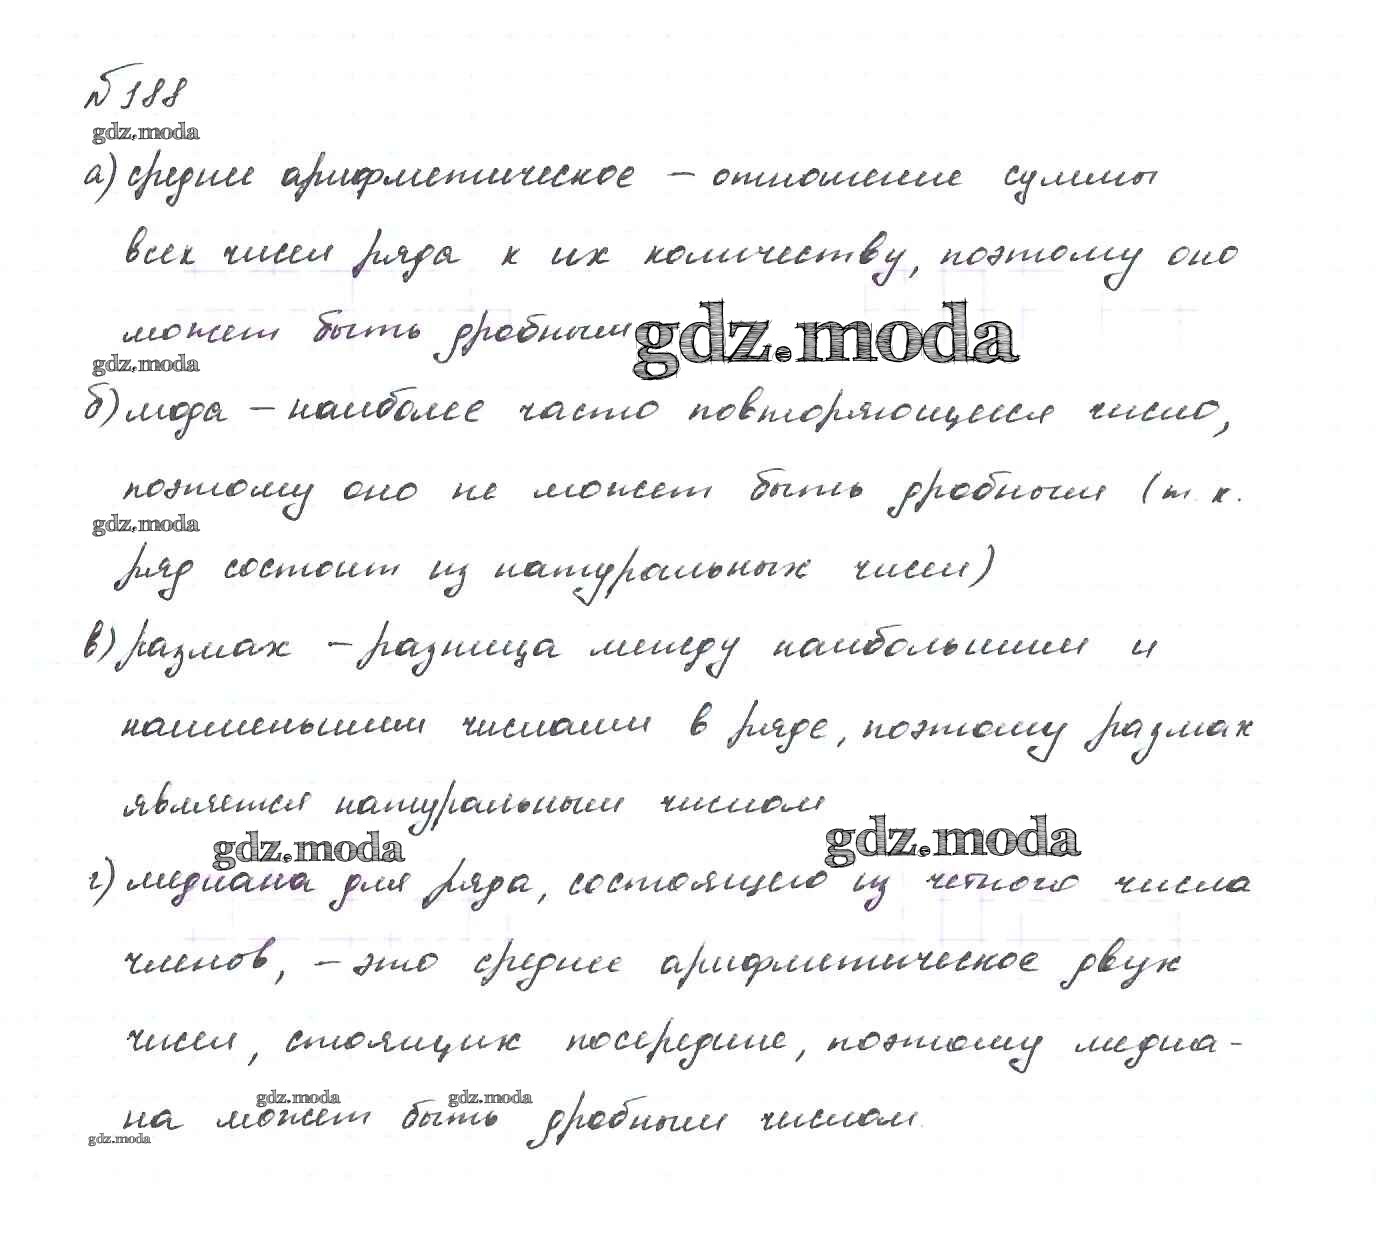 №188
gdz.moda
а) среднее арифметическое – отношение суммы
всех чисел ряда к их количеству, поэтому оно
может быть дробным
gdz.moda
gdz.moda
б) мода – наиболее часто повторяющееся число,
поэтому оно не может быть дробным (т.к.
gdz.moda
ряд состоит из натуральных чисел)
в) размах – разница между наибольшим и
наименьшим числами в ряде, поэтому размах
является натуральным числом
gdz.moda
gdz.moda
г) медиана для ряда, состоящего из четного числа
членов, – это среднее арифметическое двух
чисел, стоящих посередине, поэтому медиа-
gdz.moda gdz.moda
на может быть дробным числом.
gdz.moda